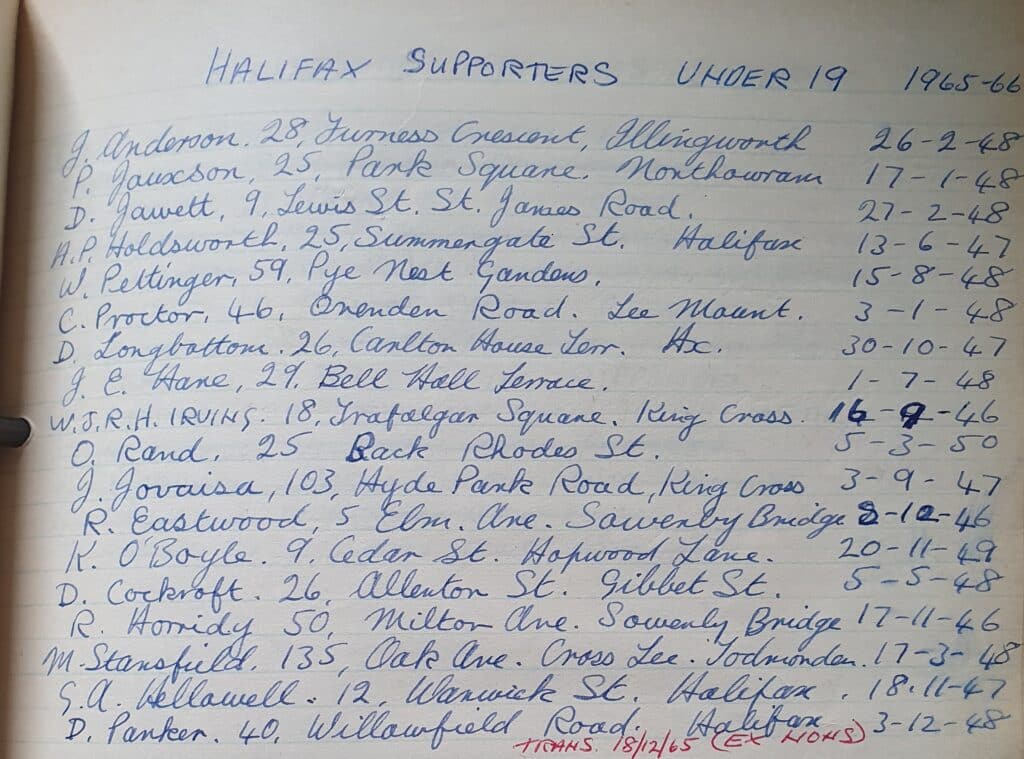 HALIFAX SUPPORTERS UNDER 19 1965-66
J. Anderson. 28, Furness Crescent, Illingworth 26-2-48
P. Jauxson, 25, Park Square. Northowram 17-1-48
D. Jawett, 9, Lewis St. St. James Road. 27-2-48
A.P. Holdsworth, 25, Summergate St. Halifax 13-6-47
W. Pettinger, 59, Pye Nest Gardens. 15-8-48
C. Proctor, 46, Ovenden Road. Lee Mount. 3-1-48
D. Longbottom. 26, Carlton House Terr. Hx. 30-10-47
J. E. Hare, 29, Bell Hall Terrace. 1-7-48
W.J.R.H. IRVING. 18, Trafalgar Square, King Cross. 16-9-46
O. Rand, 25 Back Rhodes St. 5-3-50
J. Jovaisa, 103, Hyde Park Road, King Cross 3-9-47
R. Eastwood, 5 Elm. Ave. Sowerby Bridge 8-12-46
K. O'Boyle. 9, Cedar St. Hopwood Lane. 20-11-49
D. Cockroft. 26, Allerton St. Gibbet St. 5-5-48
R. Horridy 50, Milton Ave. Sowerby Bridge 17-11-46
M. Stansfield. 135, Oak Ave. Cross Lee. Todmorden. 17-3-48
G.A. Hellawell. 12, Warwick St. Halifax. 18.11-47
D. Parker. 40, Willowfield Road. Halifax 3-12-48
TRANS. 18/12/65 (EX NONS)